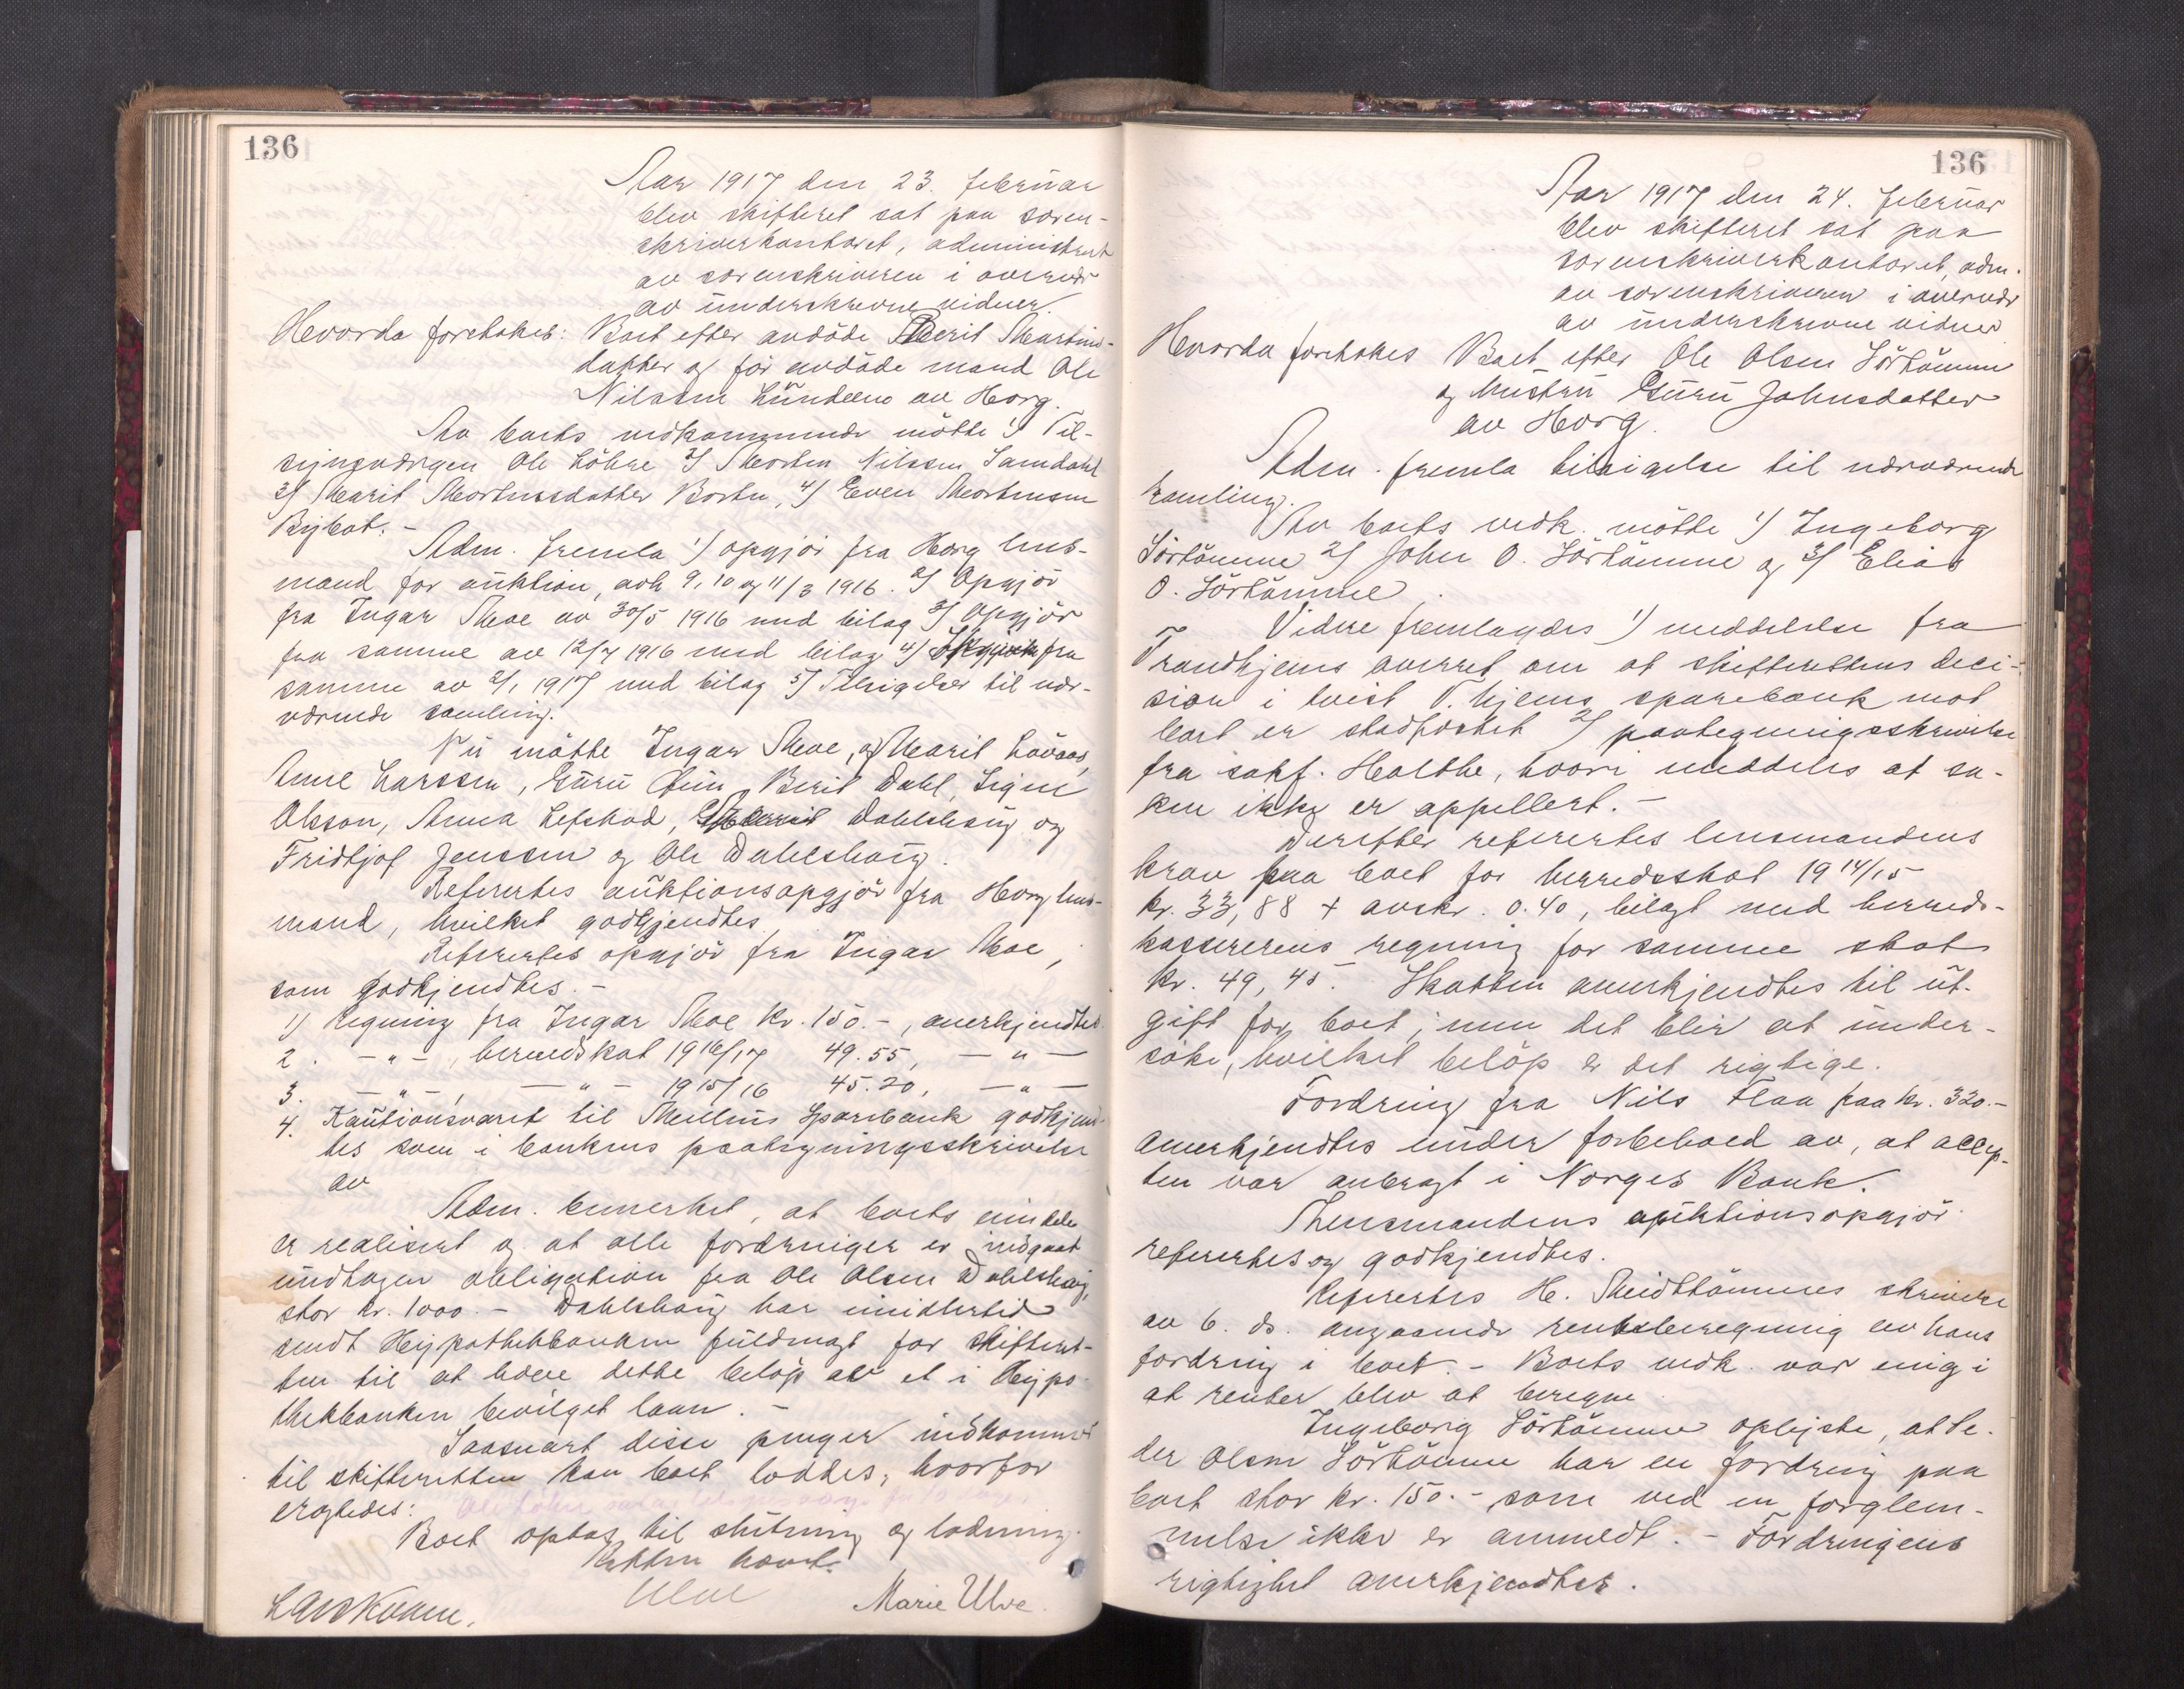 136
Aar 1917 den 23. februar
blev skifteret sat paa soren-
skriverkontoret, administrert
av sorenskriveren i overvær
av underskrevne vidner.
Hvorda foretokes: Boet efter avdöde Berit Martins-
datter og för avdöde mand Ole
Nilssen Lundemo av Horg.
Av boets vedkommende mötte 1/ Til-
synsværgen Ole Löhre 2/ Morten Nilssen Samdahl
3/ Marit Mortensdatter Borten, 4/ Even Mortensen
Rybot. -
Adm. fremla 1) opgjör fra Horg lens-
mand for auktion, avh 9, 10 og 11/3 1916. 2/ Opgjör
fra Ingar Moe av 30/5 1916 med bilag 3/ Opgjör
fra samme av 12/7 1916 med bilag 4) fra
samme av 2/1 1917 med bilag 5/ Tilsigelser til nær-
værende samling.
Nu mötte Ingar Moe, og Marit Lövaas,
Anne Larssen, Guru Berit Dahl, Signe
Olsson, Anna Dahlshaug og
Fridtjof Jenssen og Ole Dahlshaug.
Refererertes auktionsopgjör fra Horg lens-
mand, hvilket godkjendtes.
Refererertes opgjör fra Ingar Moe,
som godkjendtes. -
1) Regning fra Ingar Moe kr. 150.-, anerkjendtes.
2. - " - , herredskat 1916/17 49.55, - " -
3. - " - , - " - 1915/16 45.20, - " -
4. Kautionsvaret til Melhus Sparebank godkjend-
tes som i bankens paategningsskrivelse
av
Adm. bemerket, at boets eiendele
er realisert og at alle fordringer er indgaat
undtagen obligation fra Ole Olsen Dahlshaug,
stor kr. 1000.- Dahlshaug har imidlertid
sendt Hypothekbanken fuldmagt for skifteret-
ten til at hæve dette belöp av et i Hypo-
thekbanken bevilget laan. -
Saasnart disse penger indkommer
til skifteretten kan boet loddes, hvorfor
eragtedes:
Boet optas til slutning og lodning.
Retten hævet.
Ulve Marie Ulve.
136
Aar 1917 den 24. februar
blev skifteret sat paa
sorenskriverkontoret, adm.
av sorenskriveren i overvær
av underskrevne vidner
Hvorda foretokes Boet efter Ole Olsen Sörtömme
og hustru Guru Johnsdatter
av Horg.
Adm. fremla tilsigelse til nærværende
samling.
Av boets vedk. mötte 1) Ingeborg
Sörtömme 2/ John O. Sörtömme og 3/ Elias
O. Sörtömme.
Videre fremlagdes 1) meddelelse fra
Trondhjems overret om at skifterettens deci-
sion i tvist T.hjems sparebank mot
boet er stadfæstet 2/ paategningsskrivelse
fra sakf. Holthe, hvori meddeles at sa-
ken ikke er appellert. -
Derefter refererertes lensmandens
krav paa boet for herredsskat 1914/15
kr. 33,88 + avskr. 0.40, bilagt med herreds-
kassererens regning for samme skat
kr. 49,45. Skatten anerkjendtes til ut-
gift for boet; men det blir at under-
söke, hvilket belöp er det rigtige.
Fordring fra Nils Flaa paa kr. 320.-
anerkjendtes under forbehold av, at accep-
ten var anbragt i Norges Bank.
Lensmandens auktionsopgjör
refererertes og godkjendtes.
Refererertes H. Midttömmes skrivelse
av 6. ds. angaaende renteberegning av hans
fordring i boet. - Boets vedk. var enig i
at renter blev at beregne.
Ingeborg Sörtömme oplyste, at Pe-
der Olsen Sörtömme har en fordring paa
boet stor kr. 150.- som ved en forglem-
melse ikke er anmeldt. - Fordringens
rigtighet anerkjendtes.